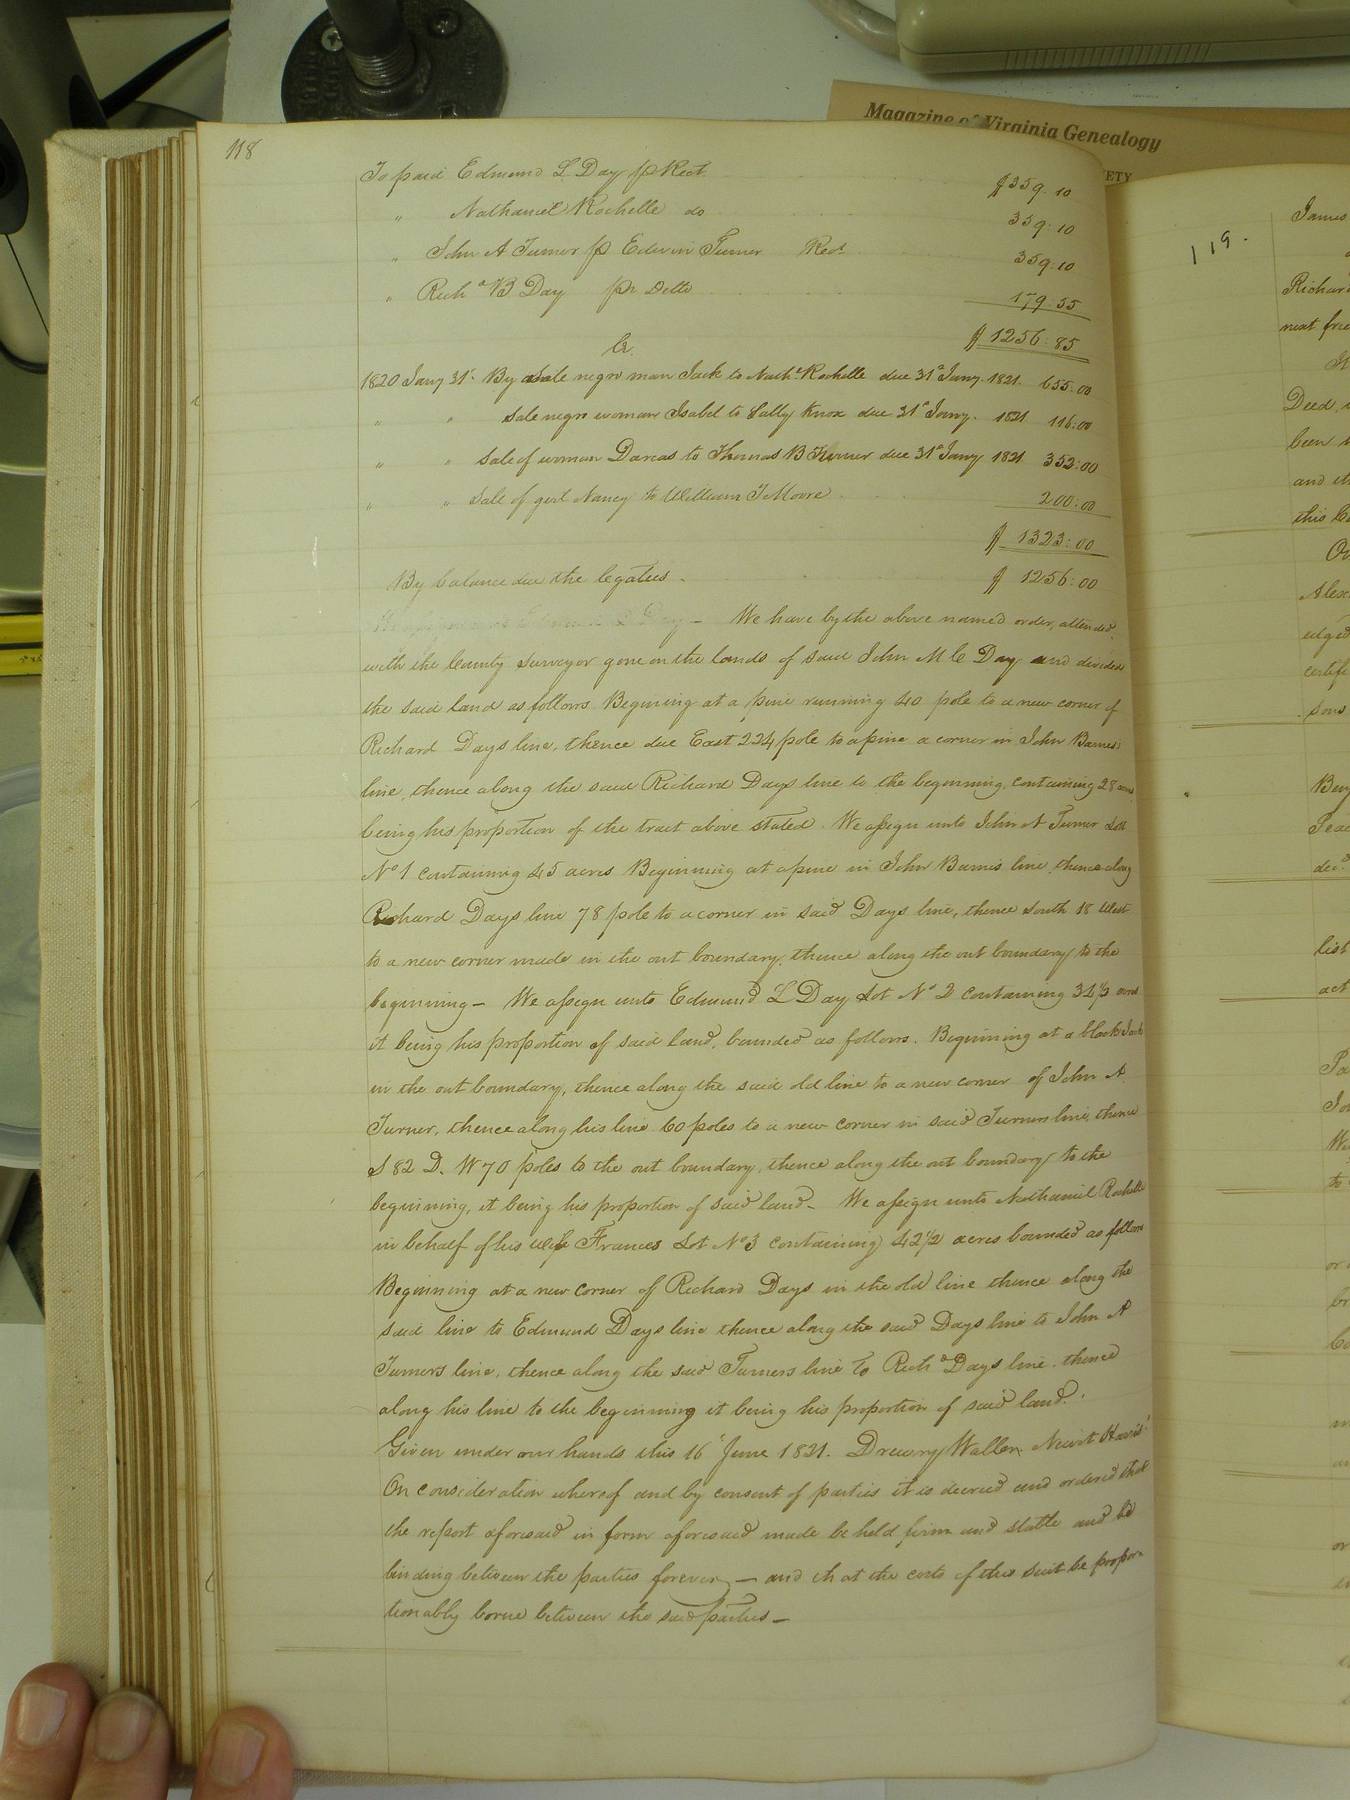 Magazine of Virginia Genealogy
ETY
118
To paid Edmund L Day p Rect. $359.10
" Nathaniel Rochelle do 359.10
" John A Turner p Edwin Turner Rect. 359.10
" Richd B Day pr Ditto 179.55
$1256.85
Cr.
1820 Jany 31st By sale negro man Jack to Nathl Rochelle due 31st Jany. 1821. 655.00
" " Sale negro woman Isabel to Sally Knox due 31st Jany. 1821 116.00
" " Sale of woman Darcas to Thomas B Turner due 31st Jany 1821 352.00
" " Sale of girl Nancy to William T Moore 200.00
$1323.00
By balance due the legatees. $1256.00
L Day — We have by the above named order, attended
with the County Surveyor gone on the lands of said John McC Day and divided
the said land as follows Begining at a pine running 40 pole to a new corner of
Richard Days line, thence due East 224 pole to a pine a corner in John Barnes
line, thence along the said Richard Days line to the beginning, containing 28 acres
being his proportion of the tract above stated. We assign unto John A Turner Lott
No 1 containing 45 acres Beginning at a pine in John Barnes line, thence along
Richard Days line 78 pole to a corner in said Days line, thence South 18 West
to a new corner made in the out boundary, thence along the out boundary to the
beginning — We assign unto Edmund L Day Lot No 2 containing 34½ acres
it being his proportion of said land, bounded as follows. Beginning at a black Jack
in the out boundary, thence along the said old line to a new corner of John A
Turner, thence along his line 60 poles to a new corner in said Turners line, thence
S 82 D. W 70 poles to the out boundary, thence along the out boundary to the
beginning, it being his proportion of said land — We assign unto Nathaniel Rochelle
in behalf of his wife Frances Lot No 3 containing 42½ acres bounded as follows
Beginning at a new corner of Richard Days in the old line thence along the
said line to Edmund Days line thence along the said Days line to John A
Turners line, thence along the said Turners line to Richd Days line thence
along his line to the beginning it being his proportion of said land.
Given under our hands this 16th June 1821. Drewry Waller, Newit Harris
On consideration whereof and by consent of parties it is decreed and ordered that
the report aforesaid in form aforesaid made be held firm and stable and be
binding between the parties forever — and that the costs of this suit be propor-
tionably borne between the said parties —
119.
James
Richard
next frie
Deed,
been
and
this
Alex
edged
certifi
sons
list
act
to
or